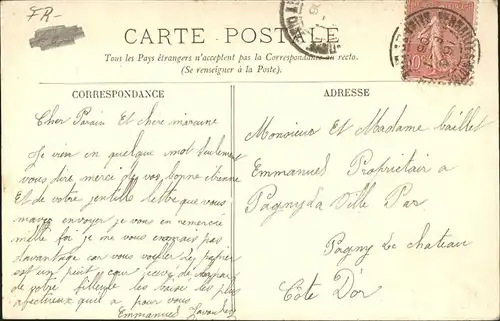 FR-
CARTE POSTALE
Tous les Pays étrangers n'acceptent pas la Correspondance au recto.
(Se renseigner à la Poste).
CORRESPONDANCE
Cher Parain Et chere maraine
Je vien en quelque mot seulement
vous dire merci de vos bonne etrenne
Et de votre jentille lettre que vous
mavez envoyer je vous en remercie
mille foi je ne vous ecrirais pas
davantage car vous voyler le papier
est un petit
de votre filleule les baisé les plus
afectieux quil a pour vous
Emmanuel
ADRESSE
Monsieur Et Madame
Emmanuel Propriétair a
Pagny La Ville Par
Pagny Le chateau
Côte D'or
10